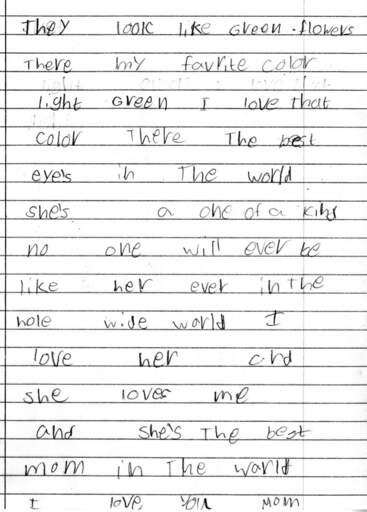 They look like Green flowers
There my favrite color
light Green I love that
color There The best
eye's in The world
she's a one of a kind
no one will ever be
like her ever in the
hole wide world I
love her and
she loves me
and she's The best
mom in The world
I love you mom